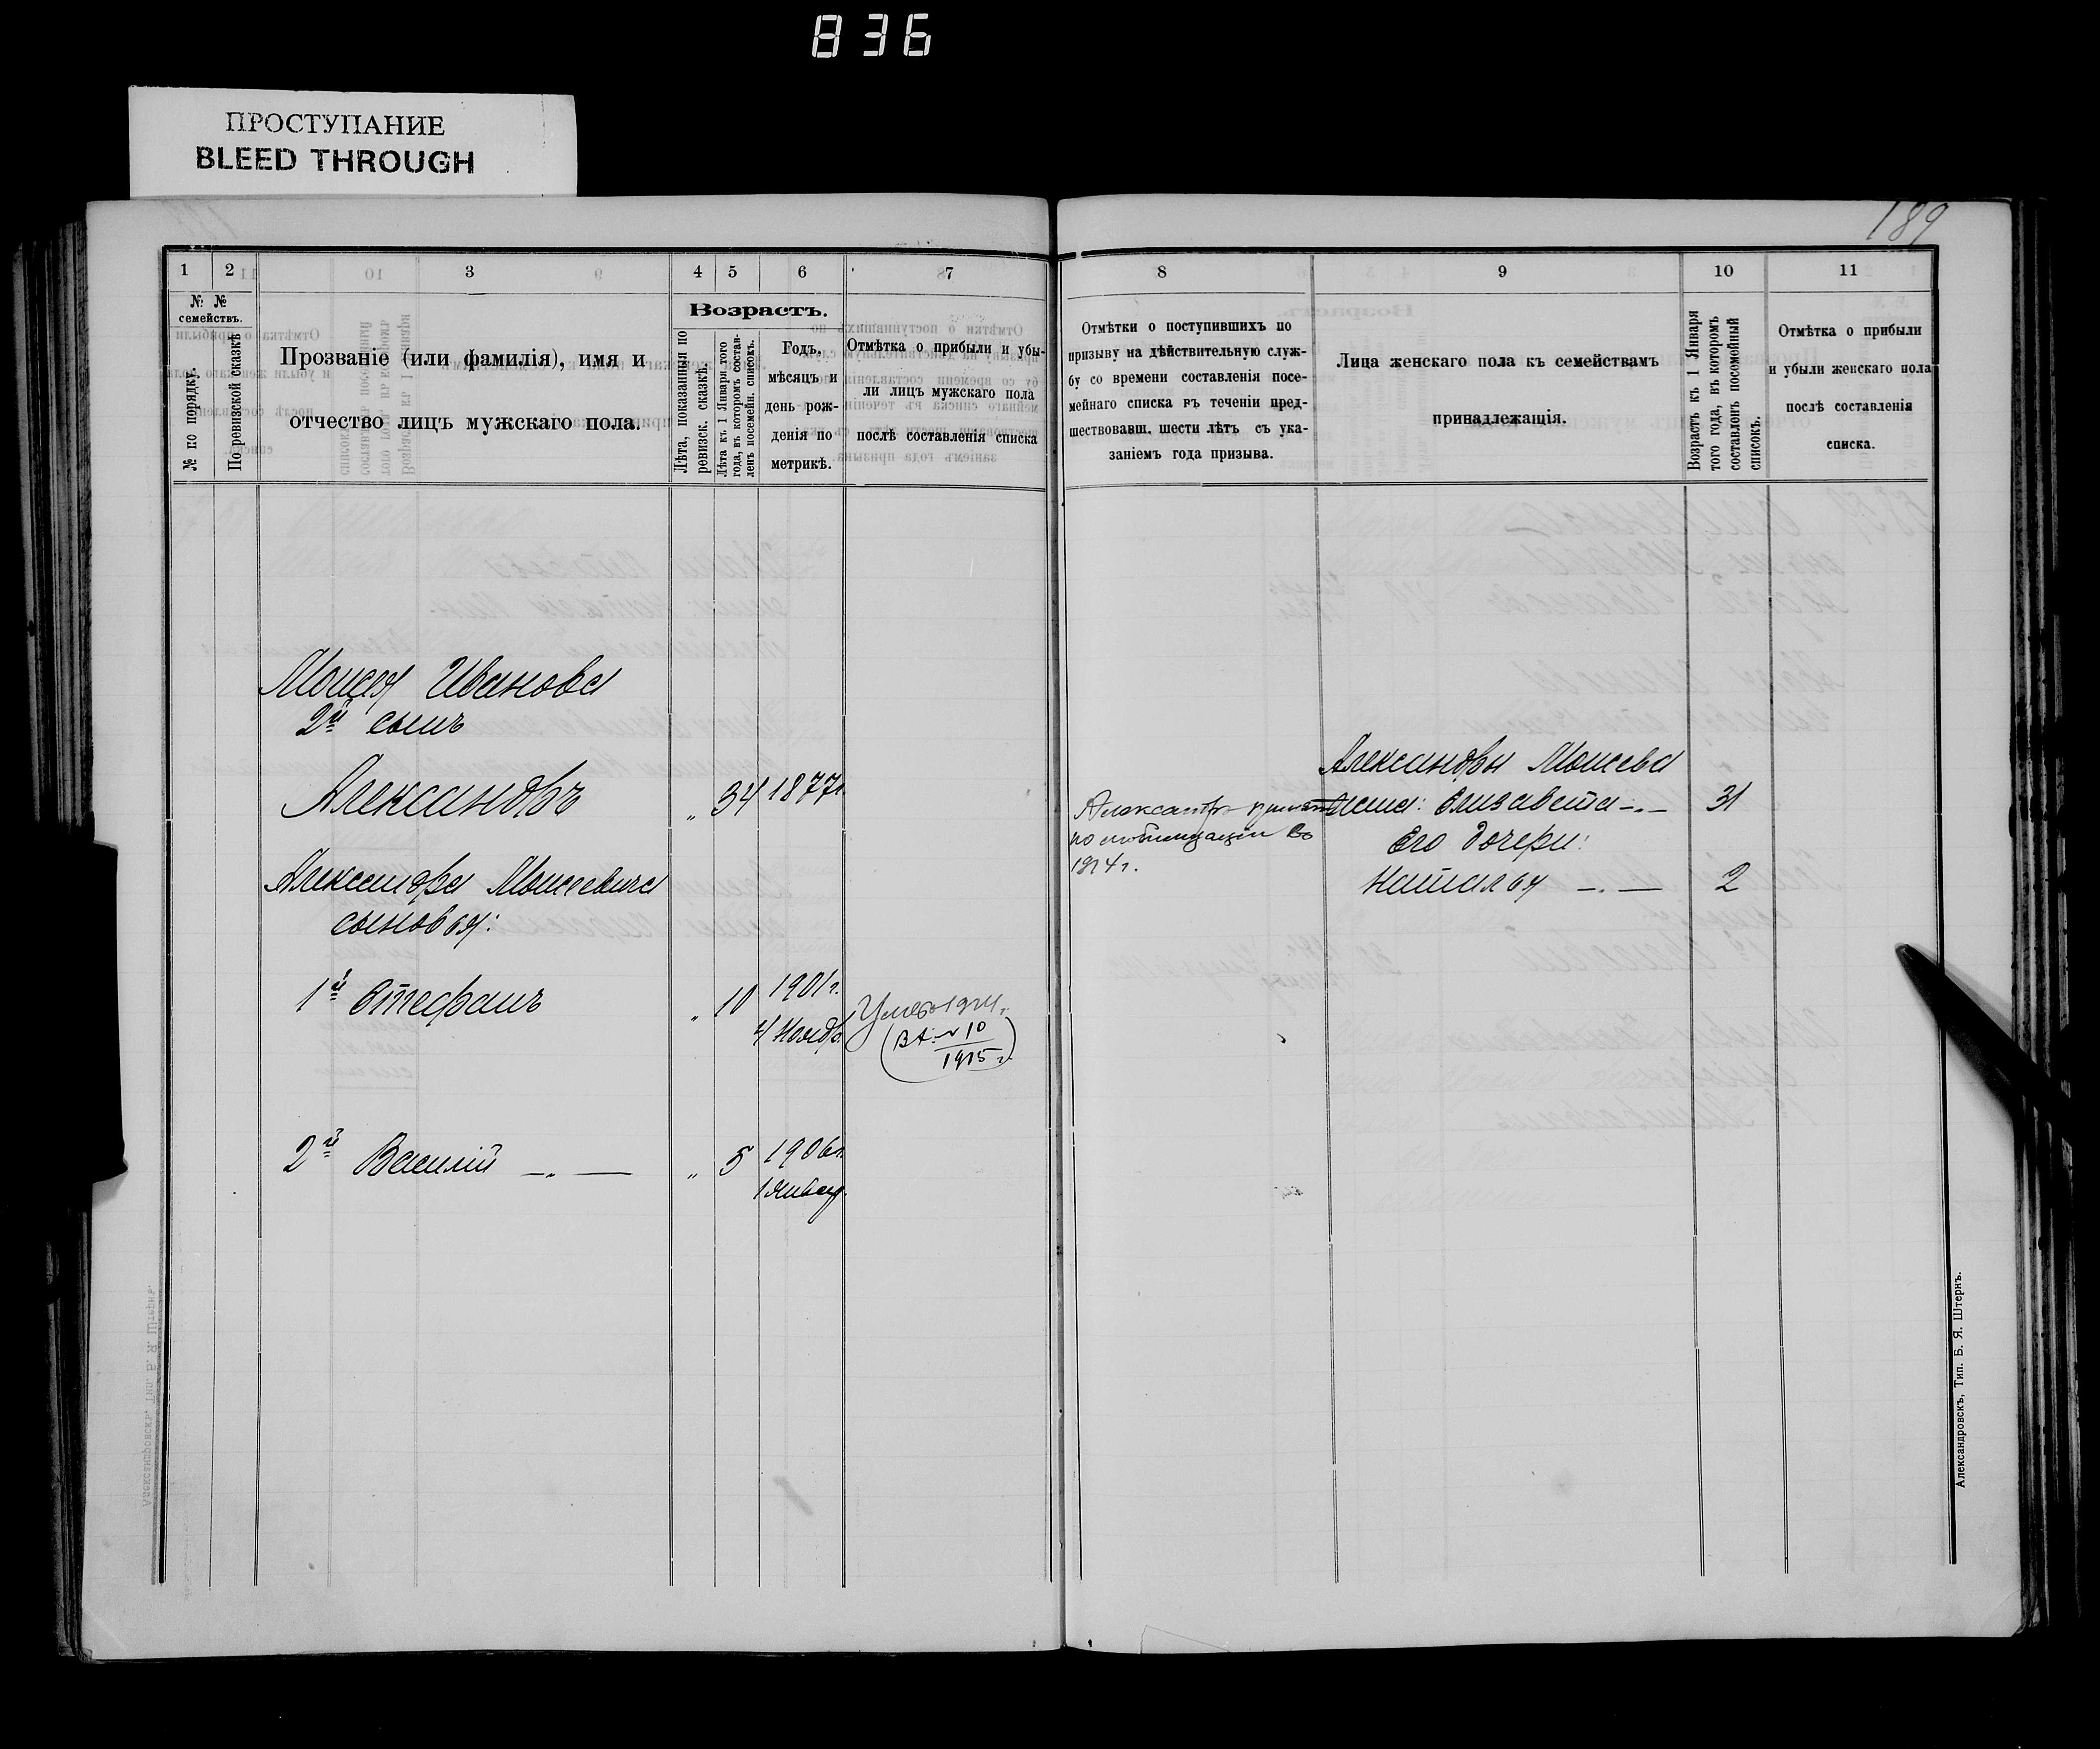 836
ПРОСТУПАНИЕ
BLEED THROUGH
189
1 2 3 4 5 6 7
№ № семействъ.
№ по порядку.
По ревизской сказкѣ
Прозваніе (или фамилія), имя и
отчество лицъ мужскаго пола.
Возрастъ.
Лѣта, показанныя по
ревизск. сказкѣ.
Лѣта къ 1 Января того
года, въ которомъ состав-
ленъ посемейн. списокъ.
Годъ,
мѣсяцъ и
день рож-
денія по
метрикѣ.
Отмѣтка о прибыли и убы-
ли лицъ мужскаго пола
послѣ составленія списка
8 9 10 11
Отмѣтки о поступившихъ по
призыву на дѣйствительную служ-
бу со времени составленія посе-
мейнаго списка въ теченіи пред-
шествовавш. шести лѣтъ съ ука-
заніемъ года призыва.
Лица женскаго пола къ семействамъ
принадлежащія.
Возрастъ къ 1 Января
того года, въ которомъ
составленъ посемейный
списокъ.
Отмѣтка о прибыли
и убыли женскаго пола
послѣ составленія
списка.
Моисея Иванова
2й сынъ
Александръ " 34 1877г.
Александра Моисеевича
сыновья:
1й Стефанъ " 10 1901г.
4 Нояб.
Умеръ
1915 г.
2й Василій —"— " 5 1906г.
1 Январ.
Александръ
по мобилизаціи въ
1914г.
Александры Моисева
жена: Елизавета —"— 31
Его дочери:
Наталья —"— 2
Александровскъ, Тип. Б. Я. Штернъ.